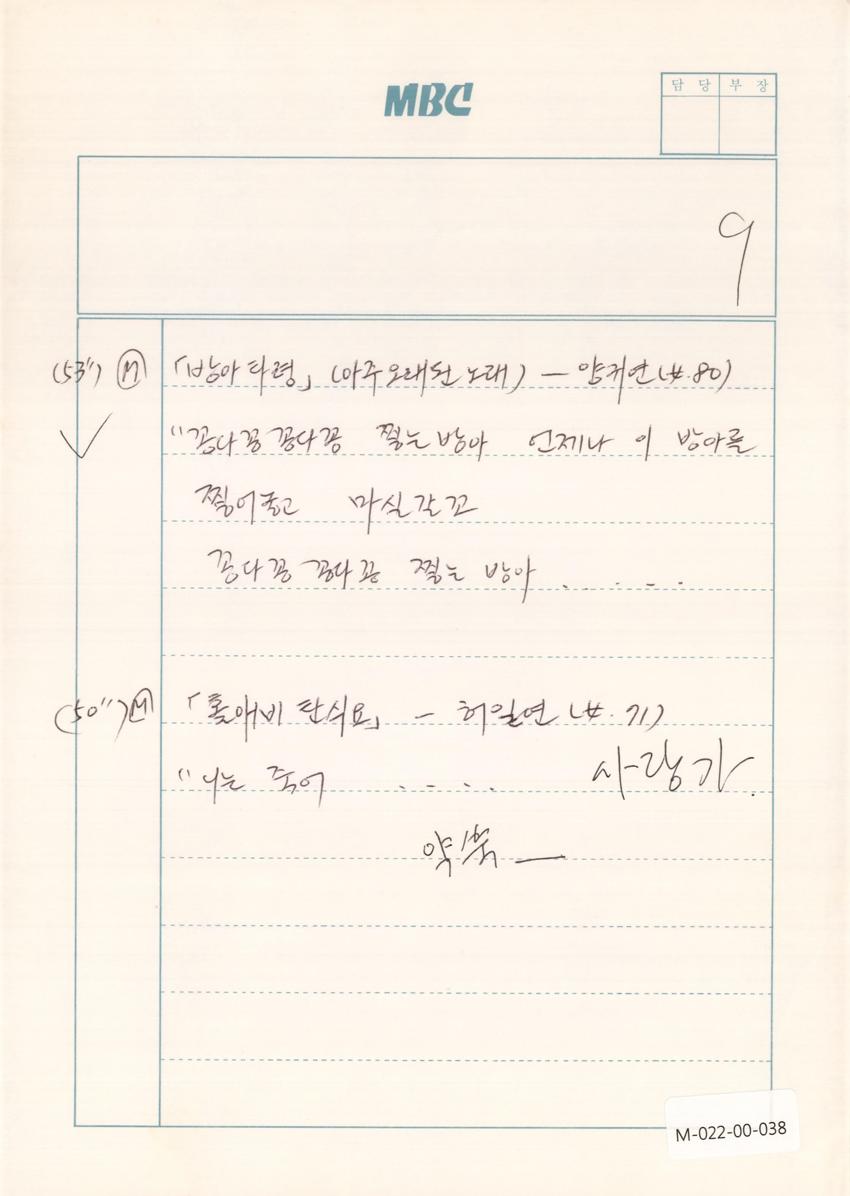 MBC
담 당 부 장
9
(53") Ⓜ 「방아타령」 (아주 오래된 노래) — 양귀연 (#.80)
"꽁다꽁 꽁다꽁 찧는 방아 언제나 이 방아를
찧어놓고 마실갈꼬
꽁다꽁 꽁다꽁 찧는 방아 . . . - .
(50") Ⓜ 「홀애비 탄식요」 — 허일연 (#.71)
"나는 죽어 . - . . 사랑가.
M-022-00-038